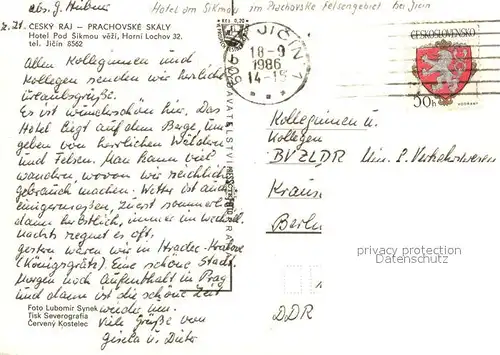 abs. G. Hübner
Hotel am Sikmov im Prachovske Felsengebiet bei Jicin
z. Zt.
ČESKÝ RÁJ – PRACHOVSKÉ SKÁLY
Hotel Pod Šikmou věží, Horní Lochov 32.
tel. Jičín 8562
JIČÍN 1
18-9
1986
14-15
506 01
ČESKOSLOVENSKO
50h
Allen Kolleginnen und
Kollegen senden wir herzliche
Urlaubsgrüße.
Es ist wunderschön hier. Das
Hotel liegt auf dem Berge, um-
geben von herrlichen Wäldern
und Felsen. Man kann viel
wandern, wovon wir reichlich
gebrauch machen. Wetter ist auch
einigermaßen, zuerst sommerl.
dann herbstlich, immer im Wechsel
nachts regnet es oft.
gestern waren wir in Hradec-Kralove
(Königsgrätz). Eine schöne Stadt.
Morgen noch Aufenthalt in Prag
und dann ist die schöne Zeit
wieder um.
Viele Grüße von
Gisela u. Dieter
Kolleginnen u.
Kollegen
BVZLDR Min. f. Verkehrswesen
Kraus
Berlin
DDR
privacy protection
privacy protection
Foto Lubomír Synek
Tisk Severografia
Červený Kostelec